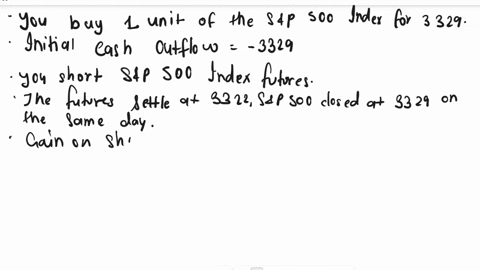 · you buy 1 unit of the S&P 500 Index for 3329.
· Initial cash outflow = -3329
· you short S&P 500 Index futures.
· The futures settle at 3322, S&P 500 closed at 3329 on
the same day.
· Gain on Sh